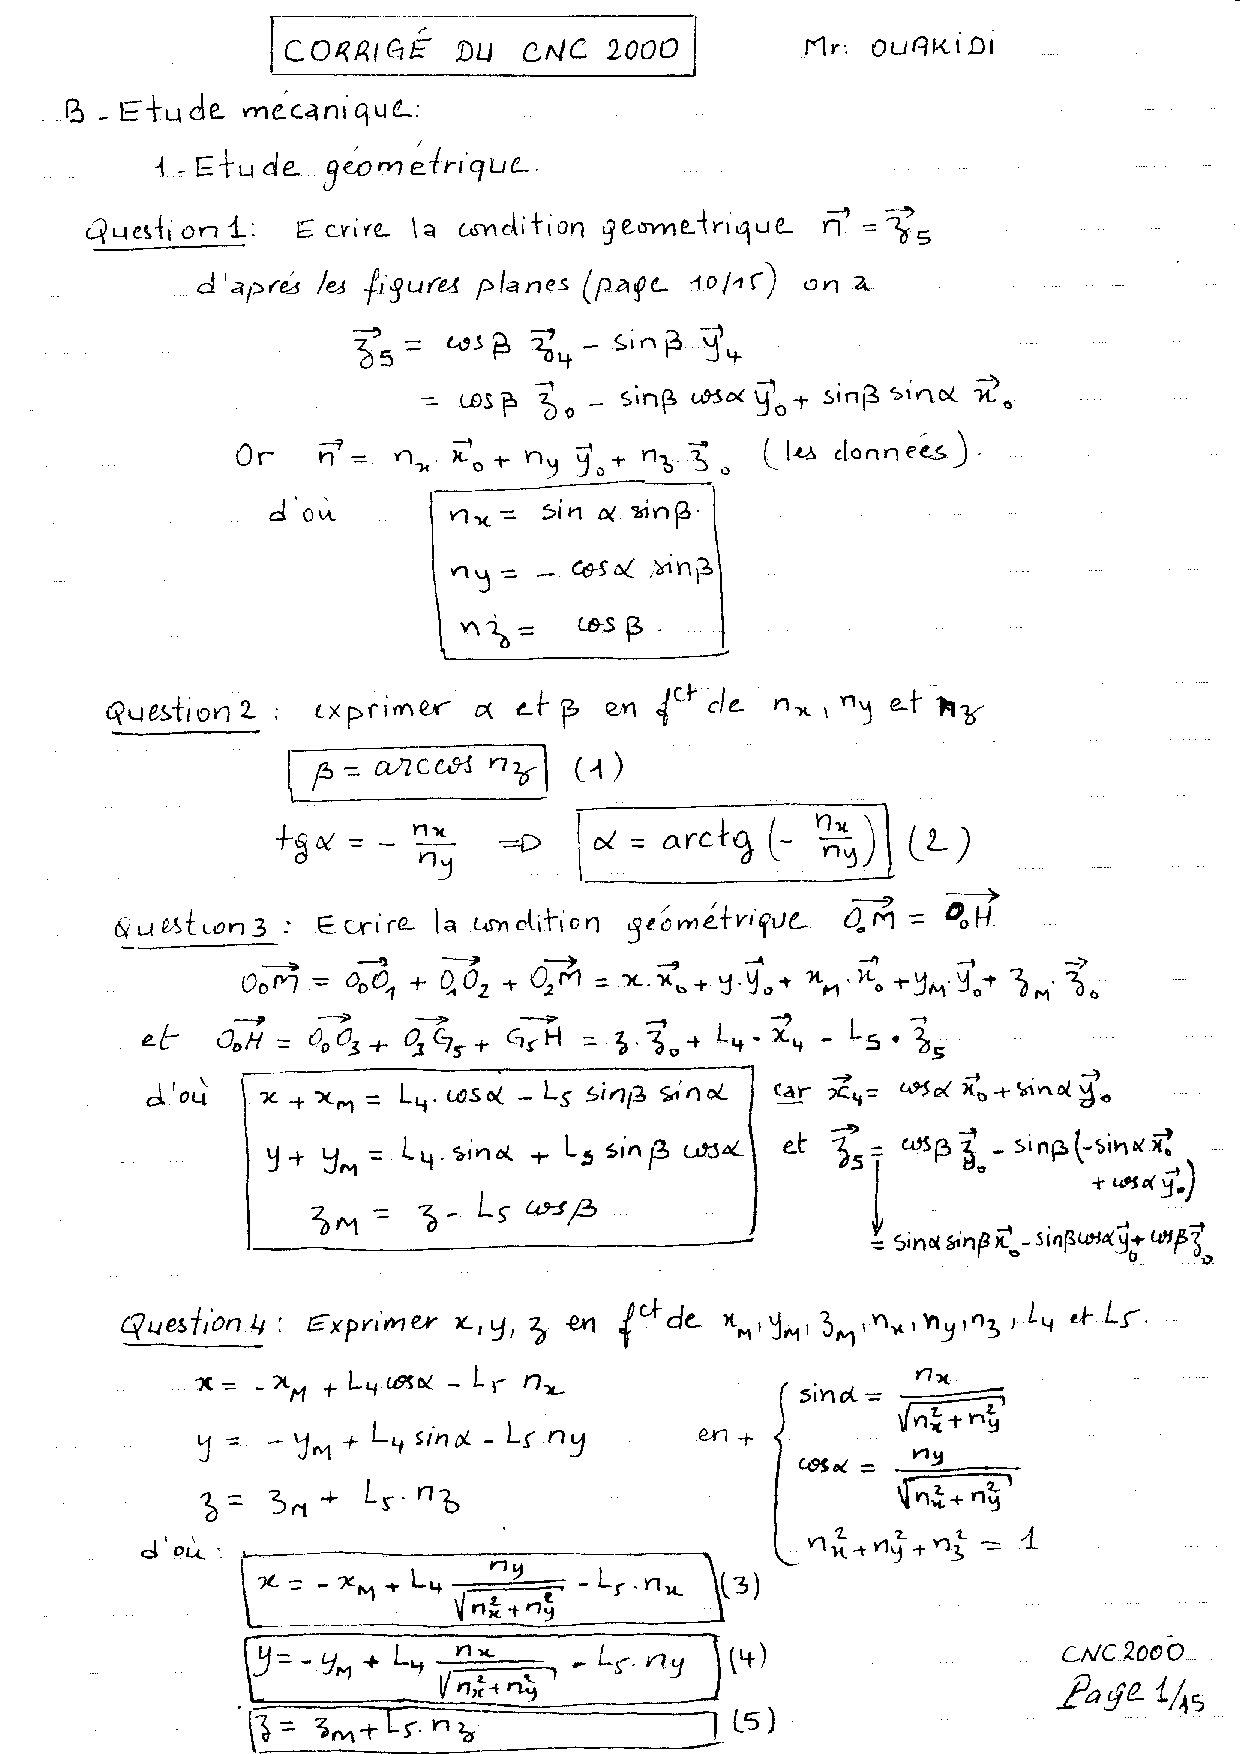 CORRIGÉ DU CNC 2000 Mr: OUAKIDI
B - Etude mécanique:
1 - Etude géométrique.
Question 1: Ecrire la condition geometrique n⃗ = z⃗₅
d'aprés les figures planes (page 10/15) on a
z⃗₅ = cosβ z⃗₄ - sinβ y⃗₄
= cosβ z⃗₀ - sinβ cosα y⃗₀ + sinβ sinα x⃗₀
Or n⃗ = nx. x⃗₀ + ny y⃗₀ + nz. z⃗₀ (les données).
d'où nx = sin α sinβ.
ny = - cosα sinβ
nz = cos β.
Question 2 : exprimer α et β en fct de nx, ny et nz
β = arccos nz (1)
tgα = - nx/ny ⇒ α = arctg (- nx/ny) (2)
Question 3 : Ecrire la condition géométrique O₀M⃗ = O₀H⃗
O₀M⃗ = O₀O₁⃗ + O₁O₂⃗ + O₂M⃗ = x. x⃗₀ + y. y⃗₀ + xM. x⃗₀ + yM. y⃗₀ + zM. z⃗₀
et O₀H⃗ = O₀O₃⃗ + O₃G₅⃗ + G₅H⃗ = z. z⃗₀ + L₄. x⃗₄ - L₅ . z⃗₅
d'où x + xM = L₄. cosα - L₅ sinβ sinα car x⃗₄ = cosα x⃗₀ + sinα y⃗₀
y + yM = L₄. sinα + L₅ sinβ cosα et z⃗₅ = cosβ z⃗₀ - sinβ (-sinα x⃗₀
+ cosα y⃗₀)
zM = z - L₅ cosβ
= sinα sinβ x⃗₀ - sinβ cosα y⃗₀ + cosβ z⃗₀
Question 4 : Exprimer x, y, z en fct de xM, yM, zM, nx, ny, nz, L₄ et L₅.
x = - xM + L₄ cosα - L₅ nx
y = - yM + L₄ sinα - L₅ ny
z = zM + L₅. nz
en + { sinα = nx/√(nx² + ny²)
cosα = ny/√(nx² + ny²)
nx² + ny² + nz² = 1
d'où :
x = - xM + L₄ ny/√(nx² + ny²) - L₅. nx (3)
y = - yM + L₄ nx/√(nx² + ny²) - L₅. ny (4)
z = zM + L₅. nz (5)
CNC 2000
Page 1/15